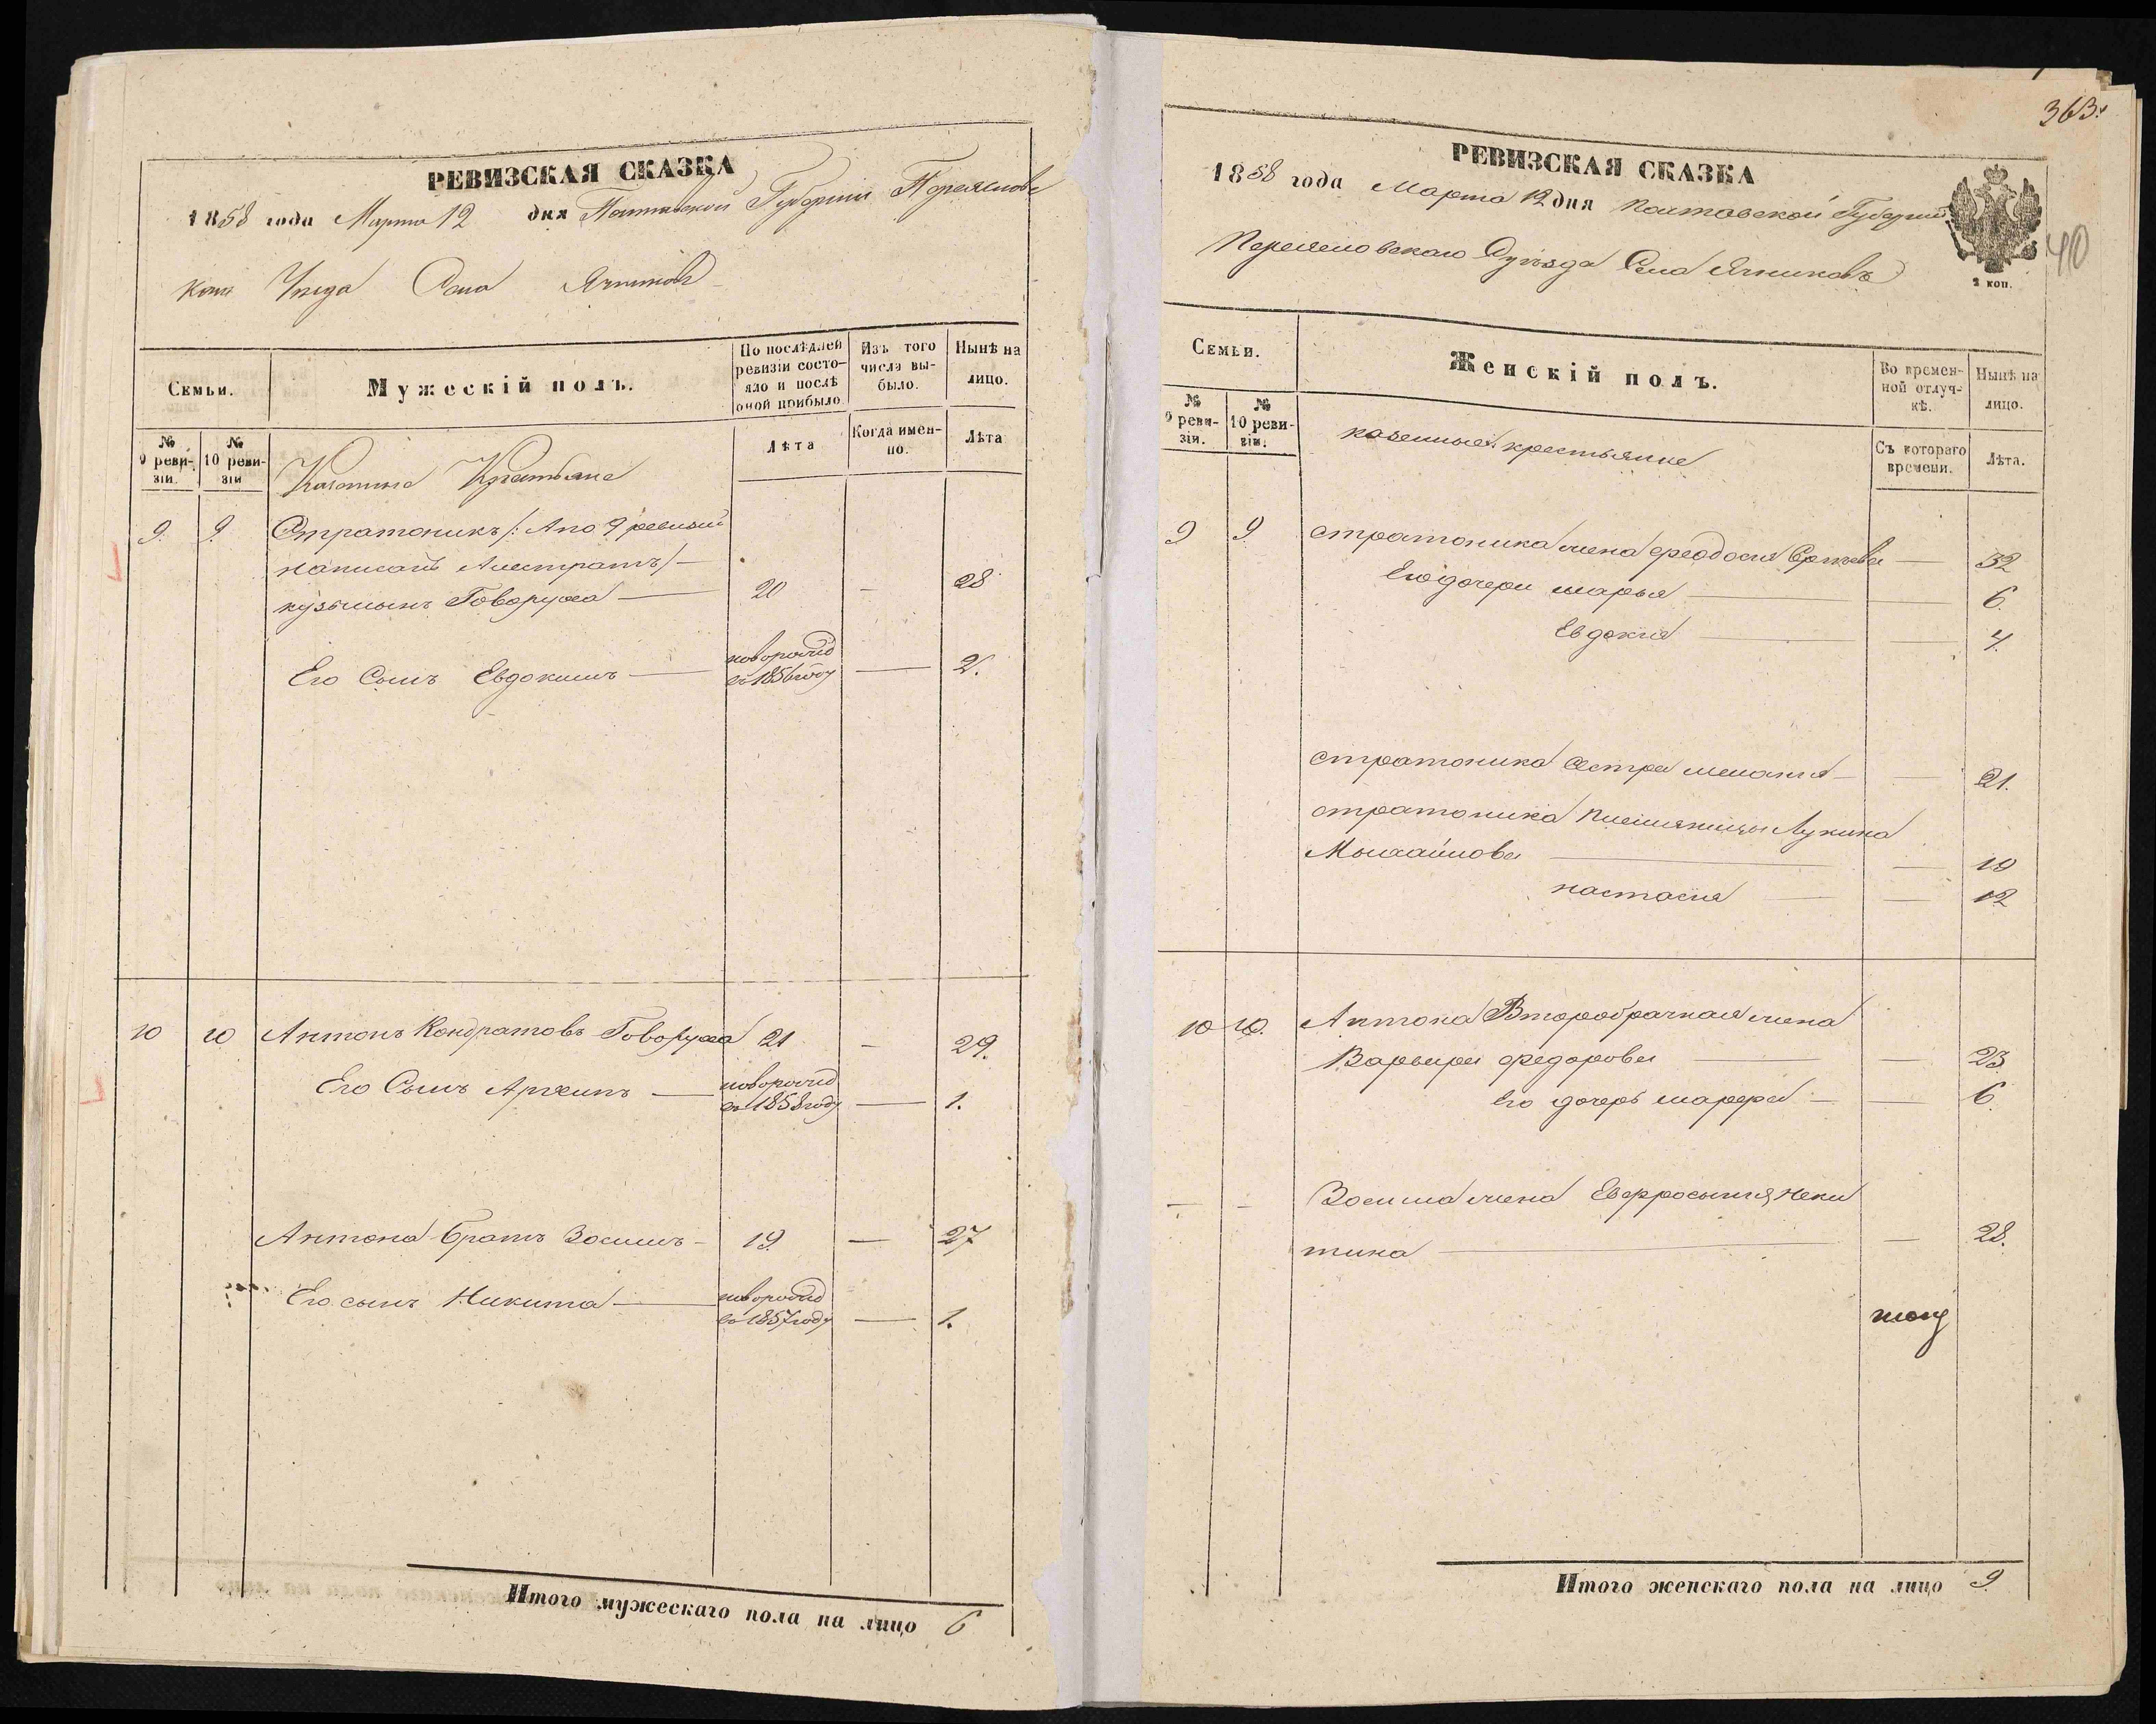 РЕВИЗСКАЯ СКАЗКА
1858 года Марта 12 дня Полтавской Губернии Переяслов
кого Уезда Села Ячников
Семьи.
Мужескій полъ.
По послѣдней ревизіи состояло и послѣ оной прибыло
Изъ того числа выбыло.
Нынѣ на лицо.
№ 9 ревизіи.
№ 10 ревизіи
Казенные Крестьяне
Лѣта
Когда именно.
Лѣта
9. 9. Стратоникъ /: А по 9 ревизіи
написанъ Алистратъ /
кузьминъ Говоруха 20 — 28
Его Сынъ Евдокимъ новорожд въ 1856 году — 2.
10 10 Антонъ Кондратовъ Говоруха 21 — 29.
Его Сынъ Архипъ новорожд въ 1858 году — 1.
Антона братъ Зосимъ 19. — 27
Его сынъ Никита новорожд въ 1857 году — 1.
Итого мужескаго пола на лицо 6
363.
40
РЕВИЗСКАЯ СКАЗКА
1858 года Марта 12 дня Полтавской Губерніи
Переясловскаго Уѣзда Села Ячниковъ
2 коп.
Семьи.
Женскій полъ.
Во временной отлучкѣ.
Нынѣ на лицо.
№ 9 ревизіи.
№ 10 ревизіи.
казенные крестьяне
Съ котораго времени.
Лѣта.
9 9 Стратоника жена феодосия — 32
Его дочери марья — 6
Евдокия — 4.
Стратоника сестра мелания — 21.
стратоника племянницы Лукина
Михайлова — 10
настасия — 12
10 10. Антона Второбрачная жена
Варвара федорова — 23
его дочерь марфа — 6.
— - Зосима жена Евфросиния, Ники
тина — 28.
Итого женскаго пола на лицо 9